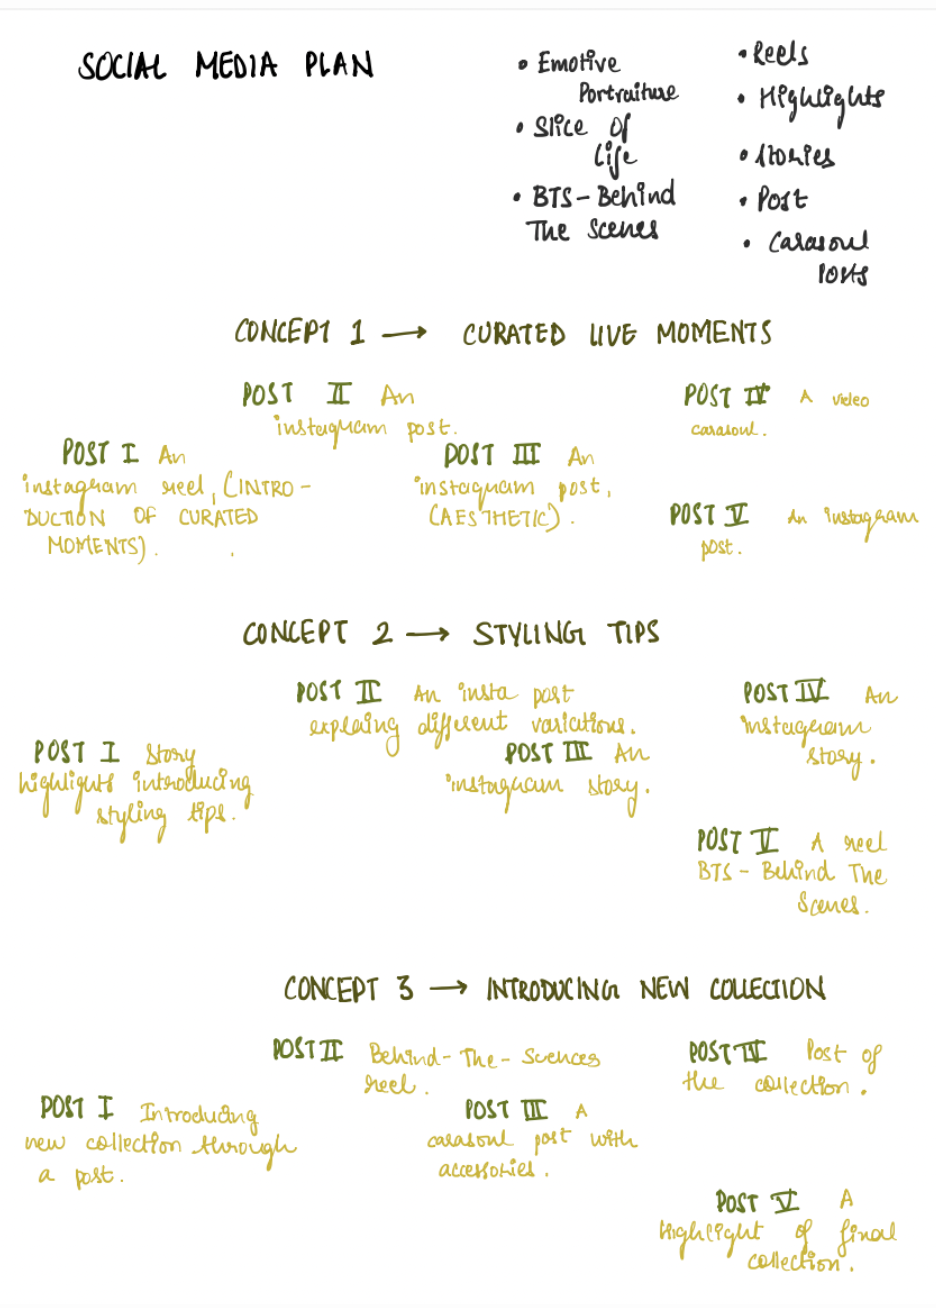 SOCIAL MEDIA PLAN
• Emotive
Portraiture
• Slice of
Life
• BTS - Behind
The Scenes
• Reels
• Highlights
• Stories
• Post
• Carasoul
Posts
CONCEPT 1 → CURATED LIVE MOMENTS
POST I An
instagram reel, (INTRO -
DUCTION OF CURATED
MOMENTS).
POST II An
instagram post.
POST III An
instagram post,
(AESTHETIC).
POST IV A video
carasoul.
POST V An instagram
post.
CONCEPT 2 → STYLING TIPS
POST I Story
highlights introducing
styling tips.
POST II An insta post
explaing different variations.
POST III An
instagram story.
POST IV An
instagram
story.
POST V A reel
BTS - Behind The
Scenes.
CONCEPT 3 → INTRODUCING NEW COLLECTION
POST I Introducing
new collection through
a post.
POST II Behind - The - Scences
reel.
POST III A
carasoul post with
accessories.
POST IV Post of
the collection.
POST V A
highlight of final
collection.